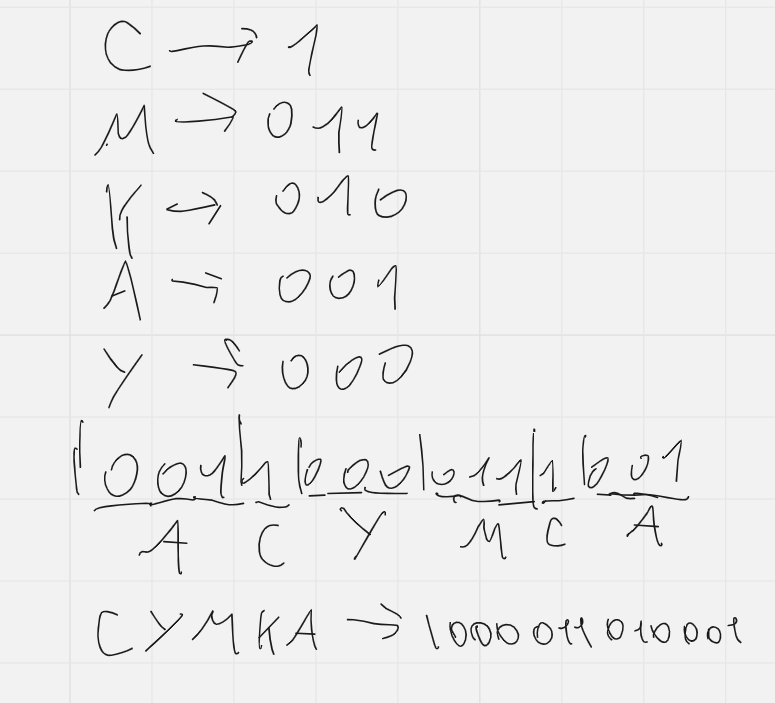 С → 1
М → 011
К → 010
А → 001
У → 000
|001|1|000|011|1|001
А С У М С А
СУМКА → 1000011010001